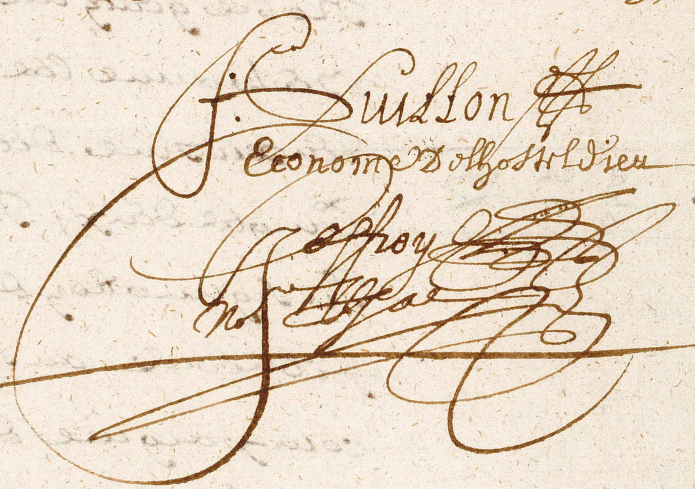 f: Guillon
Econome Delhosteldieu
Jeffroy
No.re Royal